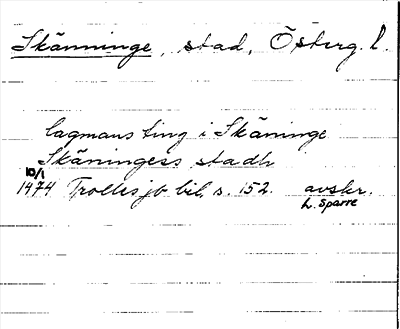 Skänninge, stad, Österg. l.
lagmans ting i Skäninge
Skäningess stadh
10/1
1474 Trolles jb bil. s. 152. avskr.
L. Sparre